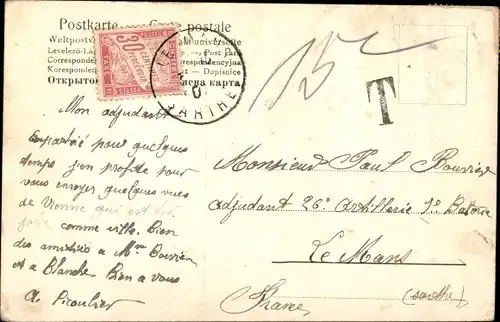 Postkarte — Carte postale
Weltpostv
universelle
Levelező-La
— Post Card
Correspondenz
Correspondenzkarte
Korespondenz
— Dopisnice
Открытое
карта
30
CENTIMES
A PERCEVOIR
LE MANS
SARTHE
15
T
Mon adjudant
Expatrié pour quelques
temps j'en profite pour
vous envoyer quelques vues
de Vienne qui est très
jolie comme ville. Bien
des amitiés à Mme Bouvier
et à Blanche Bien à vous
A. Picoulier
Monsieur Paul Bouvier
Adjudant 26e Artillerie 1e Batterie
Le Mans
(Sarthe)
France